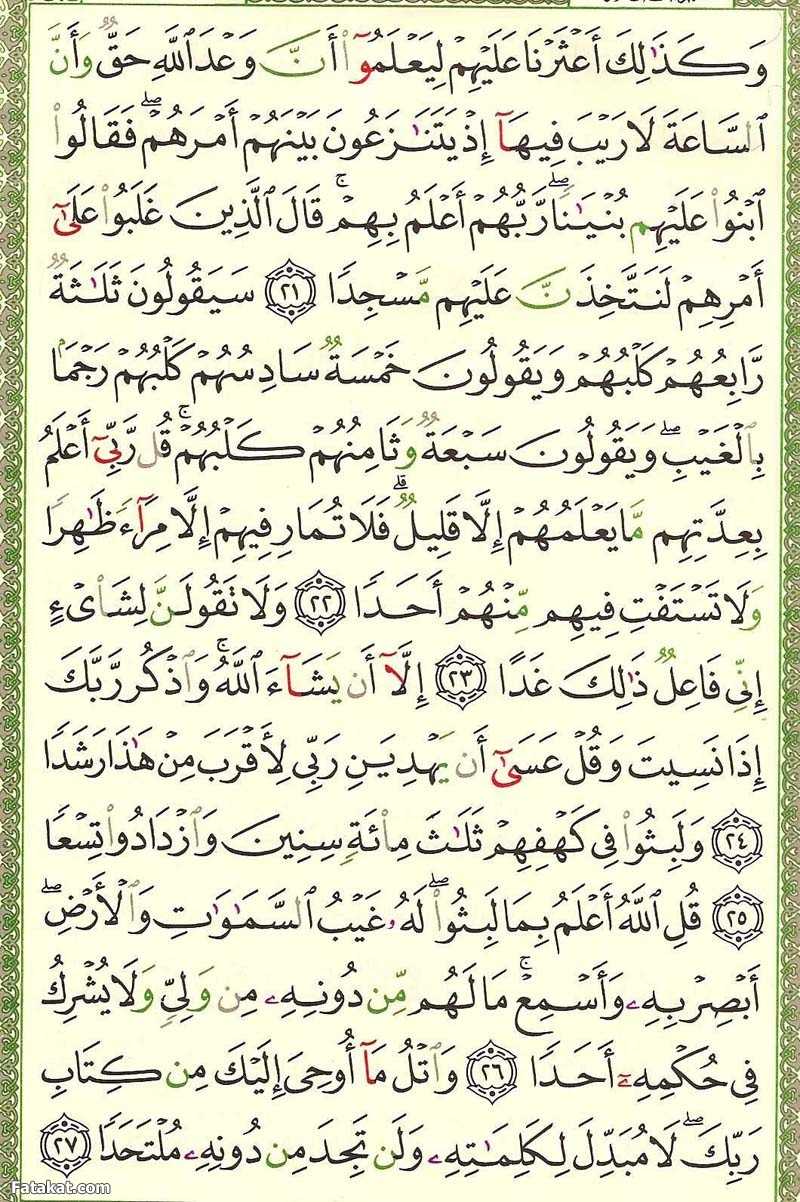 وَكَذَٰلِكَ أَعْثَرْنَا عَلَيْهِمْ لِيَعْلَمُوٓا۟ أَنَّ وَعْدَ ٱللَّهِ حَقٌّ وَأَنَّ
ٱلسَّاعَةَ لَا رَيْبَ فِيهَآ إِذْ يَتَنَٰزَعُونَ بَيْنَهُمْ أَمْرَهُمْ ۖ فَقَالُوا۟
ٱبْنُوا۟ عَلَيْهِم بُنْيَٰنًا ۖ رَّبُّهُمْ أَعْلَمُ بِهِمْ ۚ قَالَ ٱلَّذِينَ غَلَبُوا۟ عَلَىٰٓ
أَمْرِهِمْ لَنَتَّخِذَنَّ عَلَيْهِم مَّسْجِدًا ٢١ سَيَقُولُونَ ثَلَٰثَةٌ
رَّابِعُهُمْ كَلْبُهُمْ وَيَقُولُونَ خَمْسَةٌ سَادِسُهُمْ كَلْبُهُمْ رَجْمًۢا
بِٱلْغَيْبِ ۖ وَيَقُولُونَ سَبْعَةٌ وَثَامِنُهُمْ كَلْبُهُمْ ۚ قُل رَّبِّىٓ أَعْلَمُ
بِعِدَّتِهِم مَّا يَعْلَمُهُمْ إِلَّا قَلِيلٌ ۗ فَلَا تُمَارِ فِيهِمْ إِلَّا مِرَآءً ظَٰهِرًا
وَلَا تَسْتَفْتِ فِيهِم مِّنْهُمْ أَحَدًا ٢٢ وَلَا تَقُولَنَّ لِشَا۟ىْءٍ
إِنِّى فَاعِلٌ ذَٰلِكَ غَدًا ٢٣ إِلَّآ أَن يَشَآءَ ٱللَّهُ ۚ وَٱذْكُر رَّبَّكَ
إِذَا نَسِيتَ وَقُلْ عَسَىٰٓ أَن يَهْدِيَنِ رَبِّى لِأَقْرَبَ مِنْ هَٰذَا رَشَدًا
٢٤ وَلَبِثُوا۟ فِى كَهْفِهِمْ ثَلَٰثَ مِا۟ئَةٍ سِنِينَ وَٱزْدَادُوا۟ تِسْعًا
٢٥ قُلِ ٱللَّهُ أَعْلَمُ بِمَا لَبِثُوا۟ ۖ لَهُۥ غَيْبُ ٱلسَّمَٰوَٰتِ وَٱلْأَرْضِ ۖ
أَبْصِرْ بِهِۦ وَأَسْمِعْ ۚ مَا لَهُم مِّن دُونِهِۦ مِن وَلِىٍّ وَلَا يُشْرِكُ
فِى حُكْمِهِۦٓ أَحَدًا ٢٦ وَٱتْلُ مَآ أُوحِىَ إِلَيْكَ مِن كِتَابِ
رَبِّكَ ۖ لَا مُبَدِّلَ لِكَلِمَٰتِهِۦ وَلَن تَجِدَ مِن دُونِهِۦ مُلْتَحَدًا ٢٧
Fatakat.com